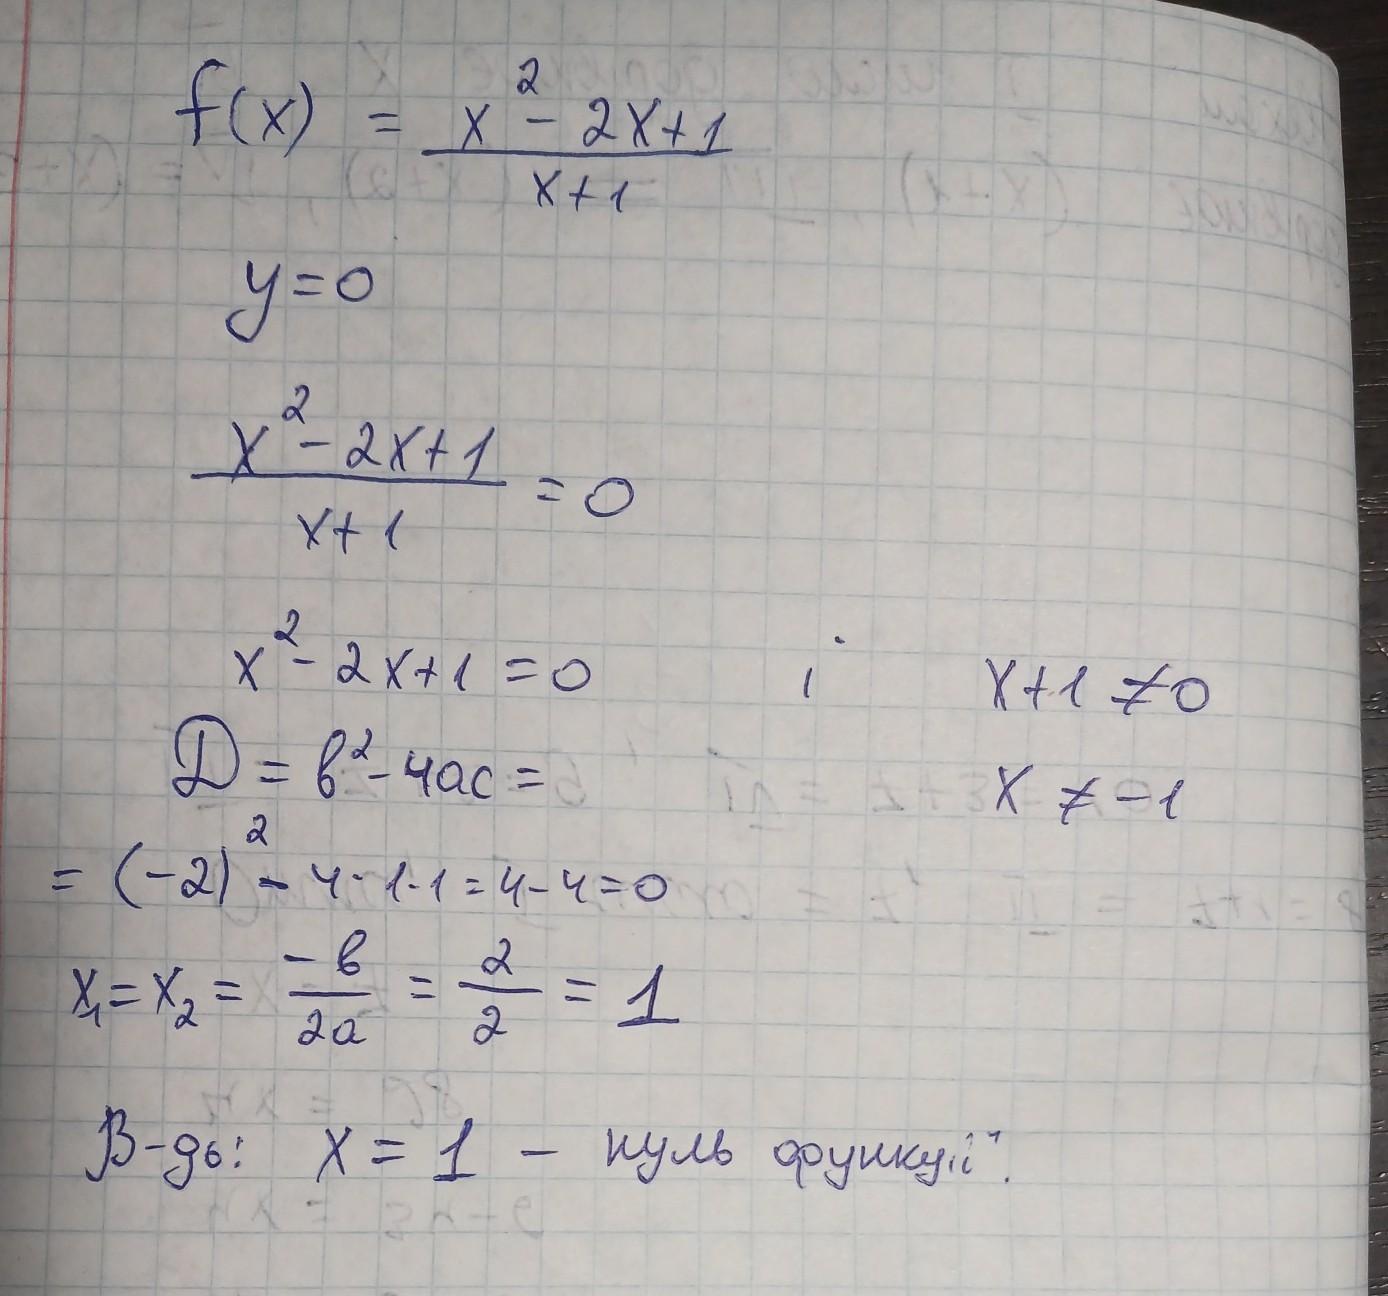 f(x) = (x² - 2x+1)/(x+1)
y=0
(x² - 2x+1)/(x+1) = 0
x² - 2x+1 = 0 і x+1 ≠ 0
D = в² - 4ac =
= (-2)² - 4·1·1 = 4-4=0
x₁ = x₂ = -в/2a = 2/2 = 1
В-дь: x = 1 - нуль функції.
x ≠ -1